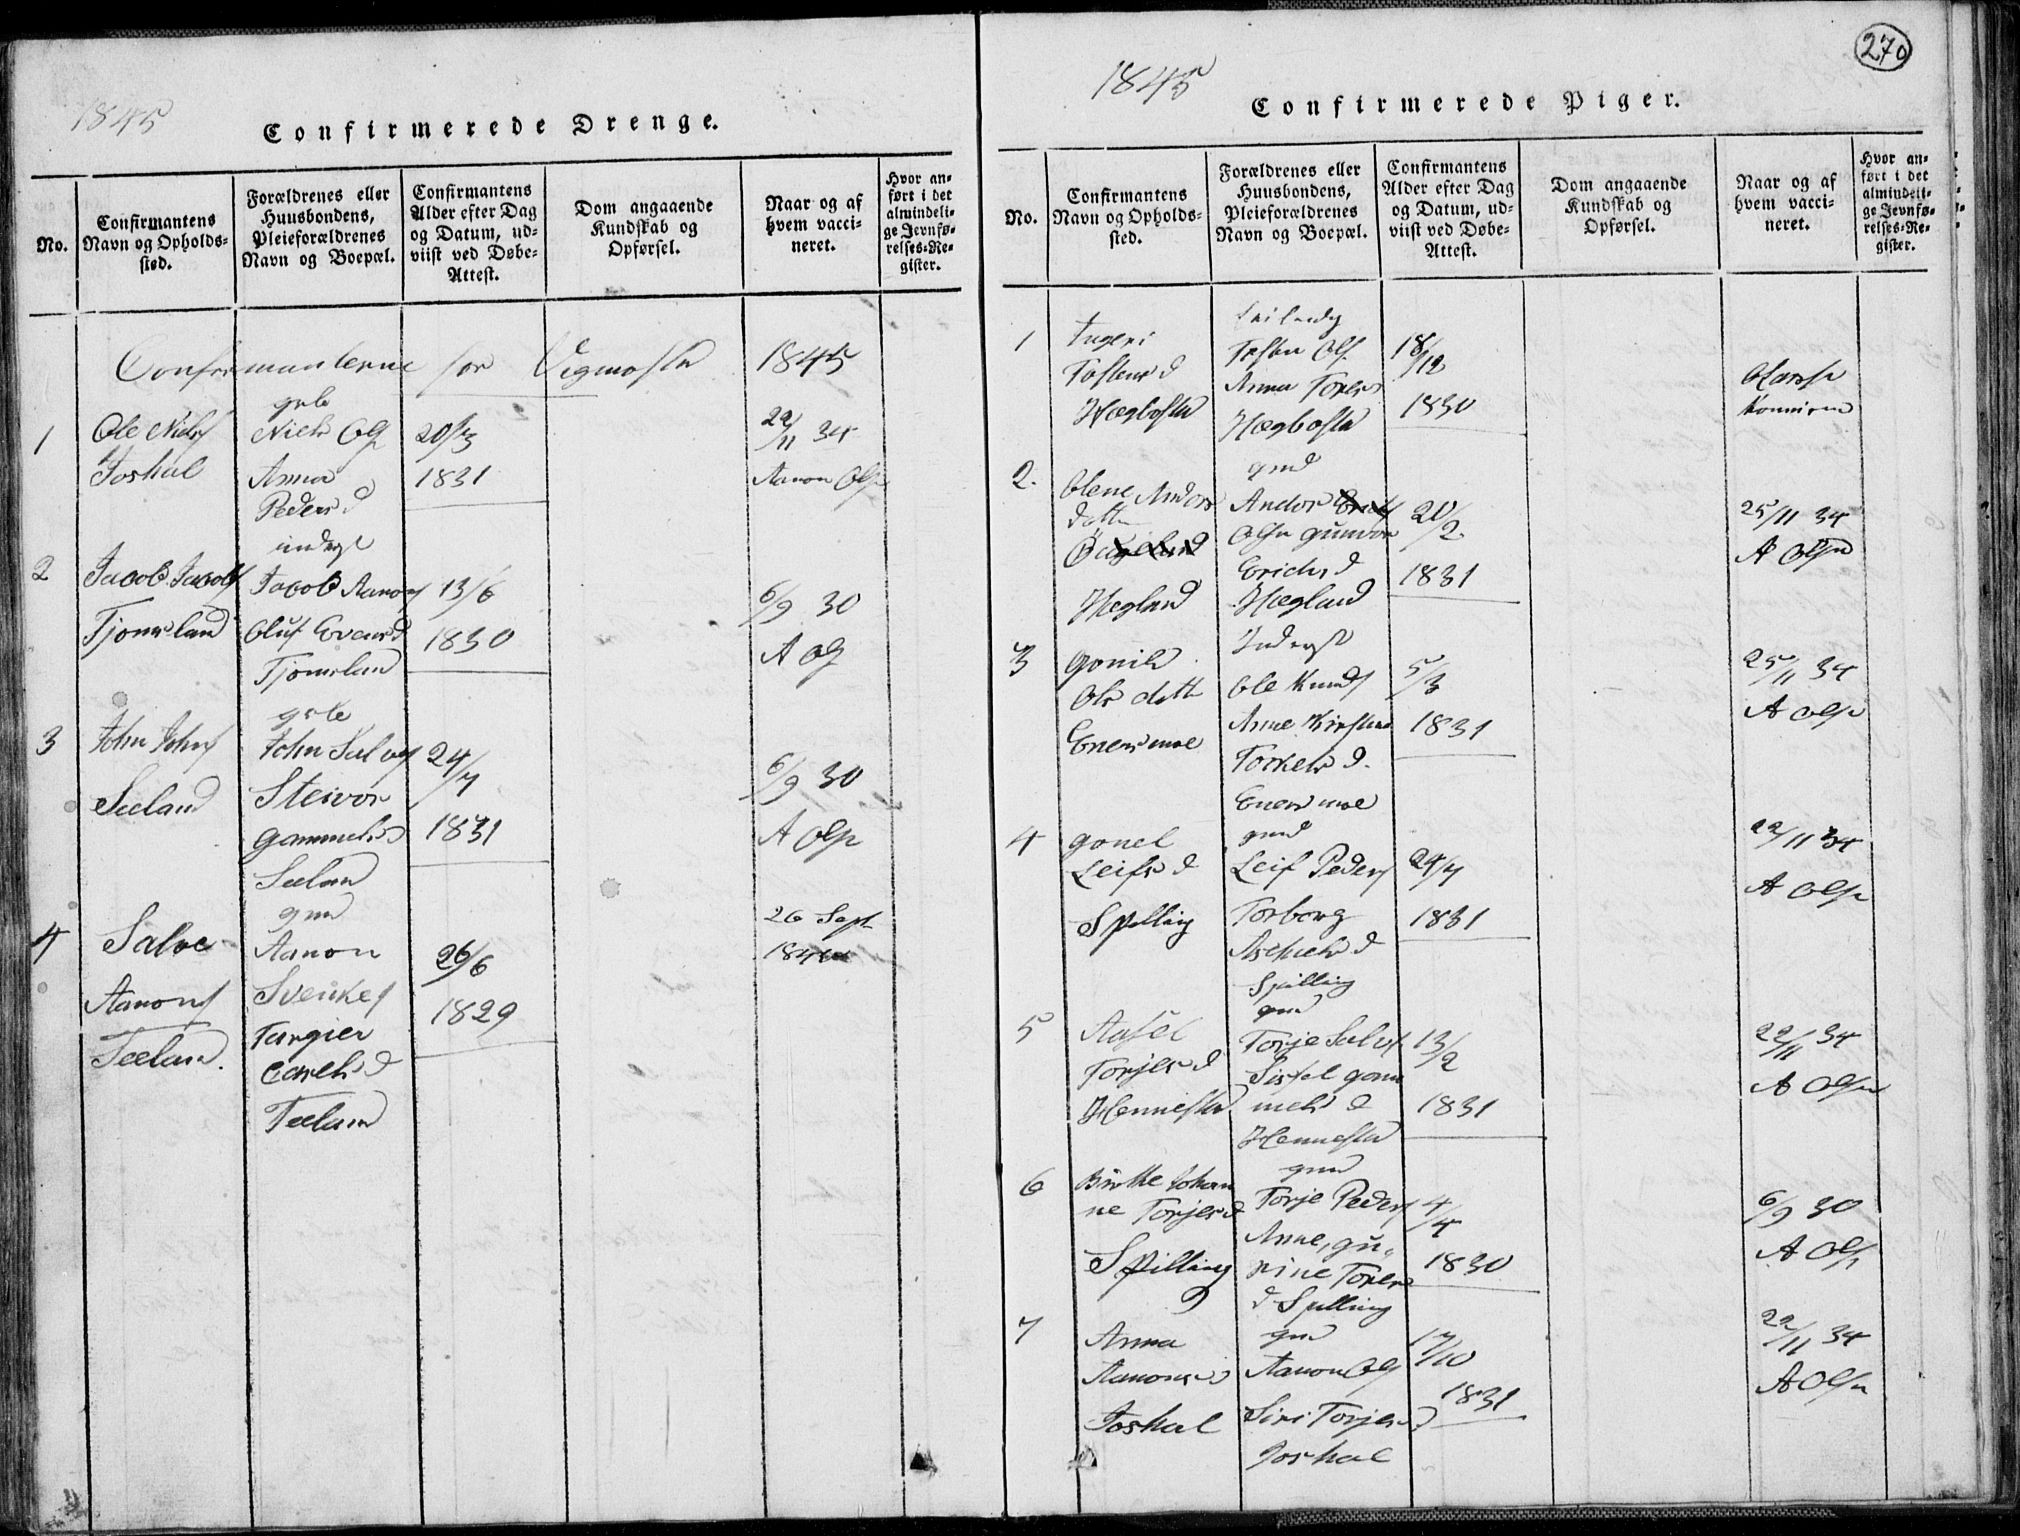 1845
Confirmerede Drenge.
No.
Confirmantens
Navn og Opholds-
sted.
Forældrenes eller
Huusbondens,
Pleieforældrenes
Navn og Boepæl.
Confirmantens
Alder efter Dag
og Datum, ud-
viist ved Døbe-
Attest.
Dom angaaende
Kundskab og
Opførsel.
Naar og af
hvem vacci-
neret.
Hvor an-
ført i det
almindeli-
ge Jevnfø-
relses-Re-
gister.
Confirmanterne for Vigmosta 1845
1
Ole Nielsf
Foshal
Niels Olf
Anna
Peders d
20/3
1831
22/11 34
Aanon Ols
2
Jacob Jacobf
Tjomsland
inderst
Jacob Aanonf
Oluf Evensd
Tjomslan
13/6
1830
6/9 30
A Ols
3
John Johnf
Seeland
John Salvef
Steivor
Gammelsd
Seelan
24/7
1831
6/9 30
A Ols
4
Salve
Aanonf
Teelan.
gmd
Aanon
Svenkef
Targier
Carelsd
Teelan
26/6
1829
26 Sept
270
1845
Confirmerede Piger.
No.
Confirmantens
Navn og Opholds-
sted.
Forældrenes eller
Huusbondens,
Pleieforældrenes
Navn og Boepæl.
Confirmantens
Alder efter Dag
og Datum, ud-
viist ved Døbe-
Attest.
Dom angaaende
Kundskab og
Opførsel.
Naar og af
hvem vacci-
neret.
Hvor an-
ført i det
almindeli-
ge Jevnfø-
relses-Re-
gister.
1
Ingeri
Tostens d
Hægbosta
Tosten Ols
Anna Tores
Hægbosta
18/12
1830
2.
Olene Anders
datter
Hægland
gmd
Anders
Olsen Gunvor
Erichs d
Hægland
20/2
1831
25/11 34
A Olsen
3
Gonild
Ols datt
Enersmoe
Inderst
Ole Knudf
Anne Kirstine
Torkels d.
Enersmoe
5/3
1831
25/11 34
A Olse
4
Gonel
Leifs d
Spilling
gmd
Leif Pedersf
Torborg
Aschiels d
Spilling
24/7
1831
22/11 34
A Olse
5
Aasel
Torjes d
Hennesta
gmd
Torje Salvef
Sissel Gom
mels d
Hennesta
13/2
1831
22/11 34
A Olsen
6
Birthe Johan
ne Torjesd
Spilling
gmd
Torje Pedersf
Anne, Gu-
rine Tores
d Spilling
4/4
1830
6/9 30
A Ols
7
Anna
Aanonsd
Foshal
gmd
Aanon Olf
Siri Torjesd
Foshal
17/10
1831
22/11 34
A Olsen